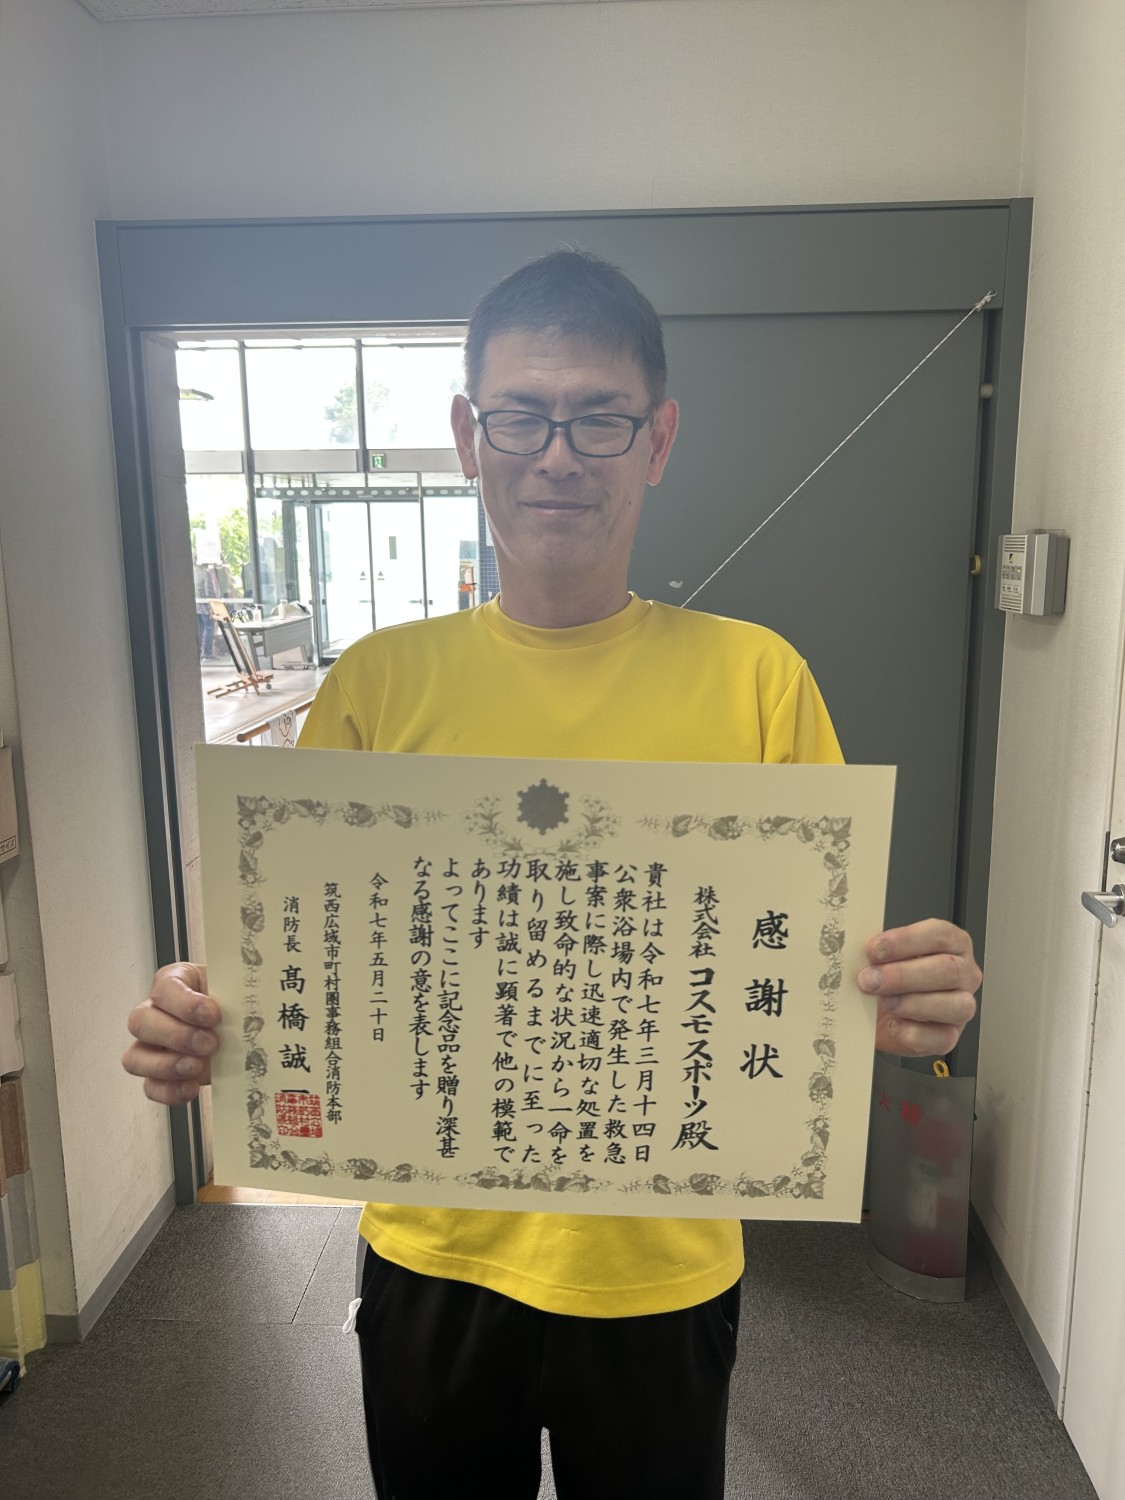 感謝状
株式会社 コスモスポーツ殿
貴社は令和七年三月十四日
公衆浴場内で発生した救急
事案に際し迅速適切な処置を
施し致命的な状況から一命を
取り留めるまでに至った
功績は誠に顕著で他の模範で
あります
よってここに記念品を贈り深甚
なる感謝の意を表します
令和七年五月二十日
筑西広域市町村圏事務組合消防本部
消防長 髙橋誠一